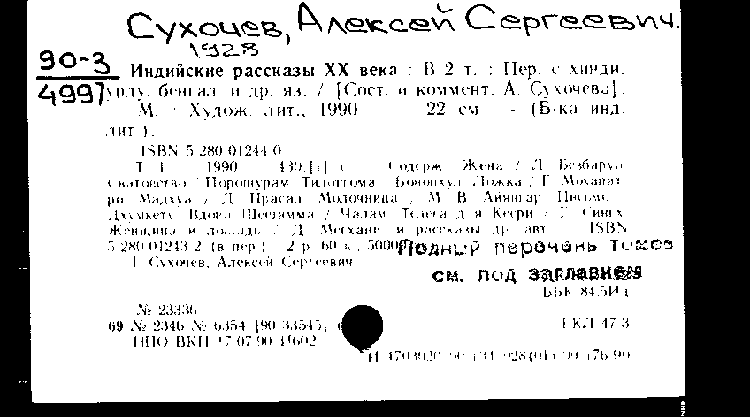 Сухочев, Алексей Сергеевич.
1928
90-3
4997
Индийские рассказы XX века : В 2 т. : Пер. с хинди,
урду, бенгал. и др. яз. / [Сост. и коммент. А. Сухочева].
М. : Худож. лит., 1990 22 см - (Б-ка инд.
лит.).
ISBN 5-280-01244-0
Т. 1 1990 439,[1] с. Содерж.: Жена / Л. Безбаруа
Сватовство / Порошурам Тилоттома / Бонопхул Ложка / Г. Моханат
Мадхуа / Д. Прасад Молочница / М. В. Айянгар Письмо
Джумкету Вдова / Чалам Телега для Кесри / Сингх
Женщина и лошадь / Д. Мегхани и рассказы др. авт. ISBN
5-280-01243-2 (в пер.) 2 р. 60 к., 50000
Полный перечень томов
1. Сухочев, Алексей Сергеевич
см. под заглавием
ББК 84.5И
№ 23336
69 № 2346 № 6354 [90-33545]
НПО ВКП 17.07.90
ГКЛ 47.3